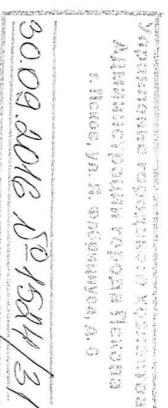 Управление городского хозяйства
Администрации города Пскова
г. Псков, ул. Я. Фабрициуса, д. 6
30.09.2016 № 1524/31